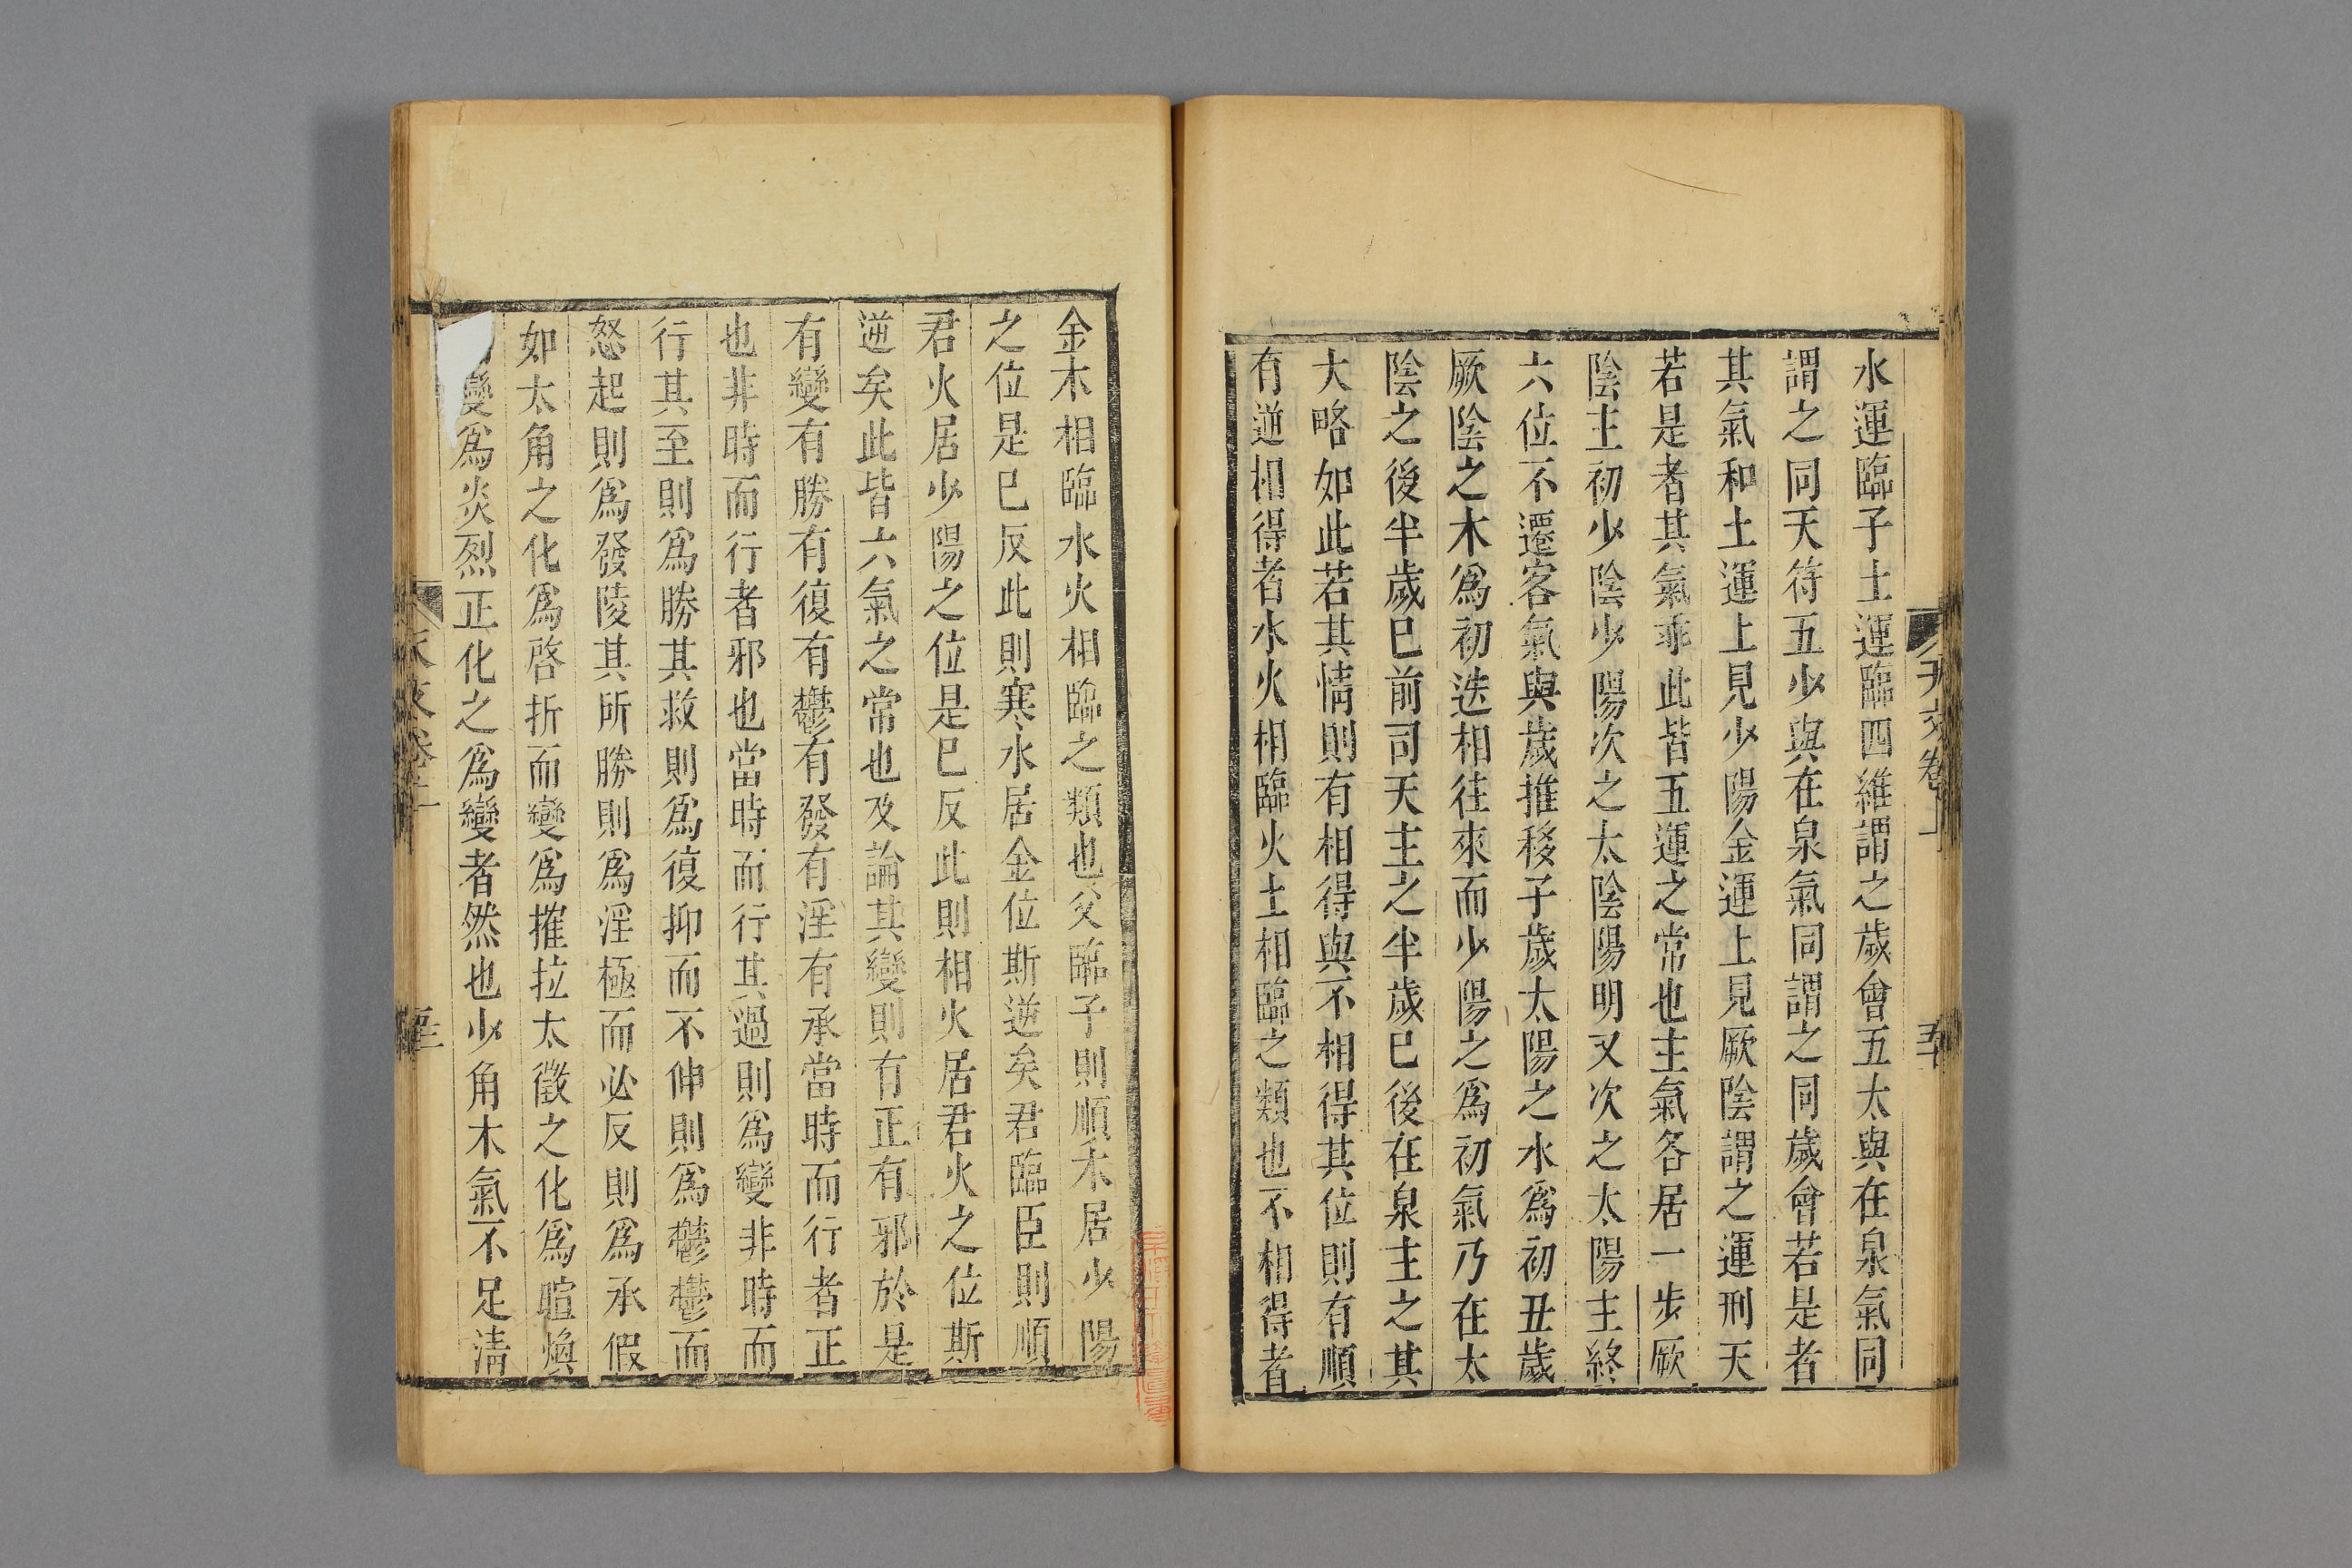 水運臨子土運臨四維謂之歲會五太與在泉氣同
謂之同天符五少與在泉氣同謂之同歲會若是者
其氣和土運上見少陽金運上見厥陰謂之運刑天
若是者其氣乖此皆五運之常也主氣各居一步厥
陰主初少陰少陽次之太陰陽明又次之太陽主終
六位不遷客氣與歲推移子歲太陽之水爲初丑歲
厥陰之木爲初迭相往來而少陽之爲初氣乃在太
陰之後半歲巳前司天主之半歲巳後在泉主之其
大略如此若其情則有相得與不相得其位則有順
有逆相得者水火相臨火土相臨之類也不相得者
金木相臨水火相臨之類也父臨子則順木居少陽
之位是巳反此則寒水居金位斯逆矣君臨臣則順
君火居少陽之位是巳反此則相火居君火之位斯
逆矣此皆六氣之常也及論其變則有正有邪於是
有變有勝有復有鬱有發有淫有承當時而行者正
也非時而行者邪也當時而行其過則爲變非時而
行其至則爲勝其救則爲復抑而不伸則爲鬱鬱而
怒起則爲發陵其所勝則爲淫極而必反則爲承假
如太角之化爲啓折而變爲摧拉太徵之化爲暄煥
變爲炎烈正化之爲變者然也少角木氣不足淸